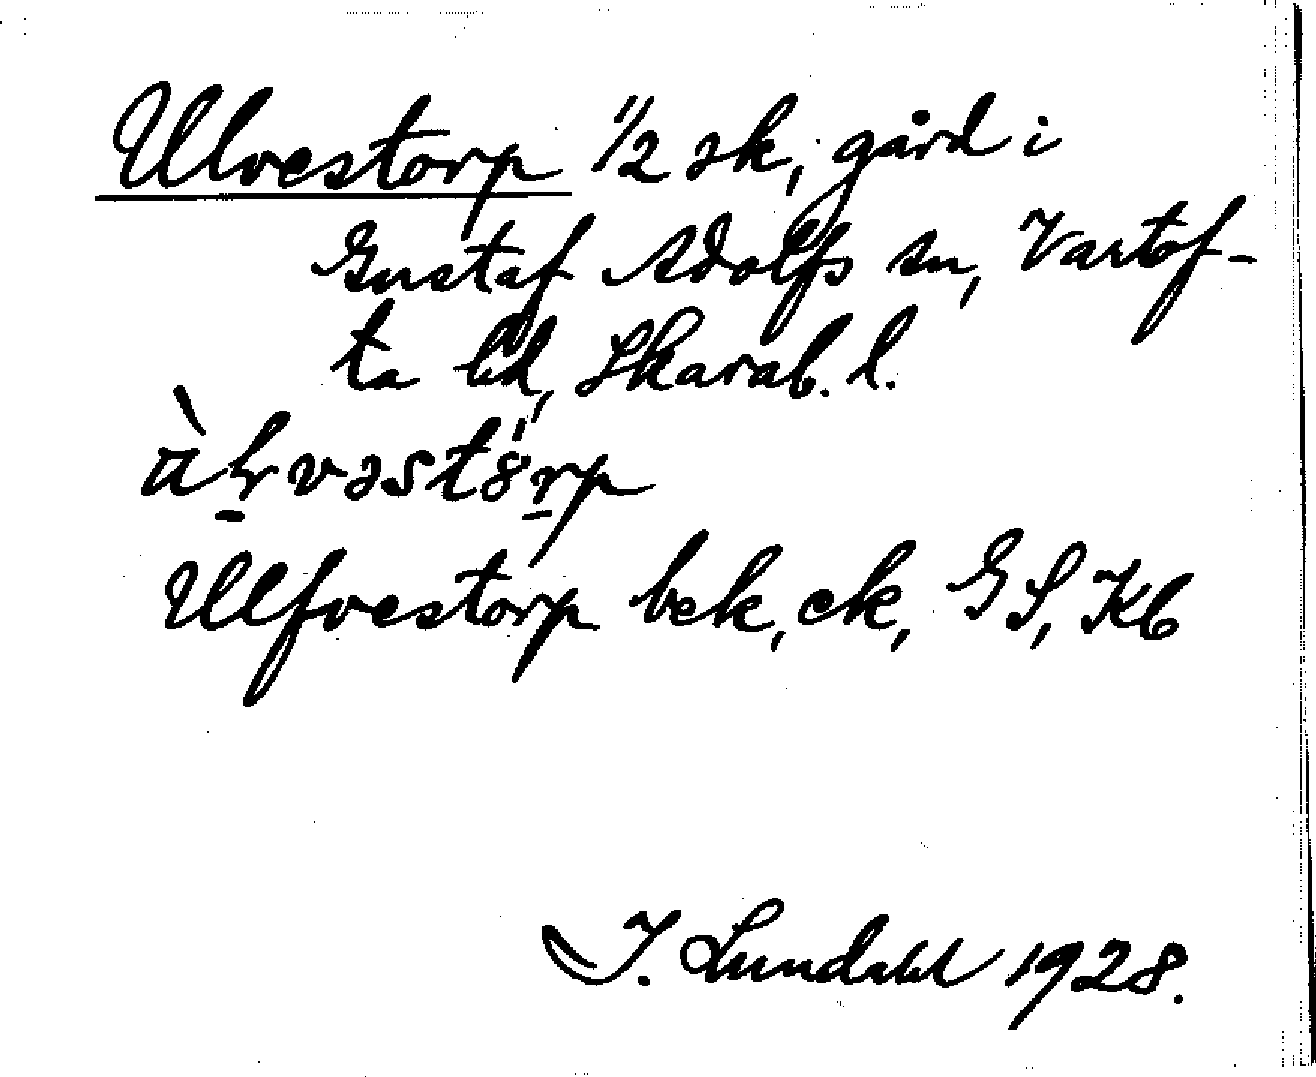 Ulvestorp 1/2 sk, gård i
Gustaf Adolfs sn, Vartof-
ta hd, Skarab. l.
Ulfvestorp bek, ek, GS, Kb
I. Lundahl 1928.